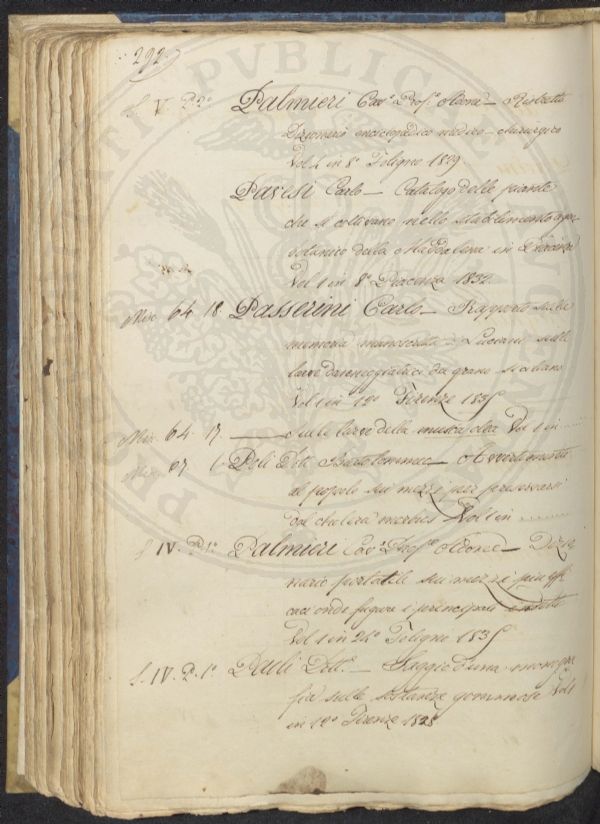 292
S. V. P. 2° Palmieri Cav.e Prof.e Adone – Ristretto
Dizionario enciclopedico medico-chirurgico
Vol 4 in 8° Foligno 1839
Pavesi Carlo – Catalogo delle piante
che si coltivano nello stabilimento agra
botanico della Maddalena in Piacenza
Vol 1 in 8° Piacenza 1832
Misc 64 18 Passerini Carlo – Rapporto sulla
memoria manoscritta sulle
larve di grano siciliano
Vol 1 in 12° Firenze 183
Misc. 64. 17 ——— Sulle larve della musca olea Vol 1 in
Misc. 67 6 Poli Dott. Bartolommeo – Avvertimenti
al popolo sui mezzi per preservarsi
dal cholera morbus Vol 1 in
S. IV. P. 1° Palmieri Cav.e Prof.e Adone – Dizio
nario portatile sui mezzi più effi
caci onde fugare i principali
Vol 1 in 24° Foligno 183
S. IV. P. 1° Dott.e – Saggio d'una monogra
fia sulle sostanze gommose Vol 1
in 12° Firenze 1828
PUBLICAE